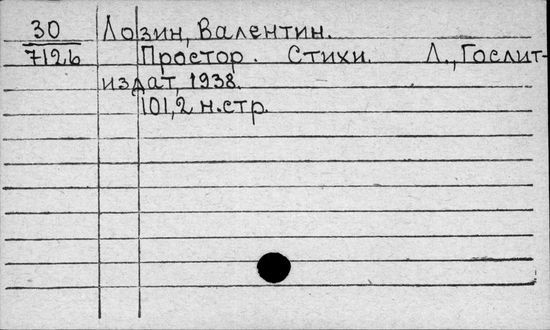 30 Лозин, Валентин.
7126 Простор. Стихи. Л., Гослит-
издат, 1938.
101,2 н.стр.